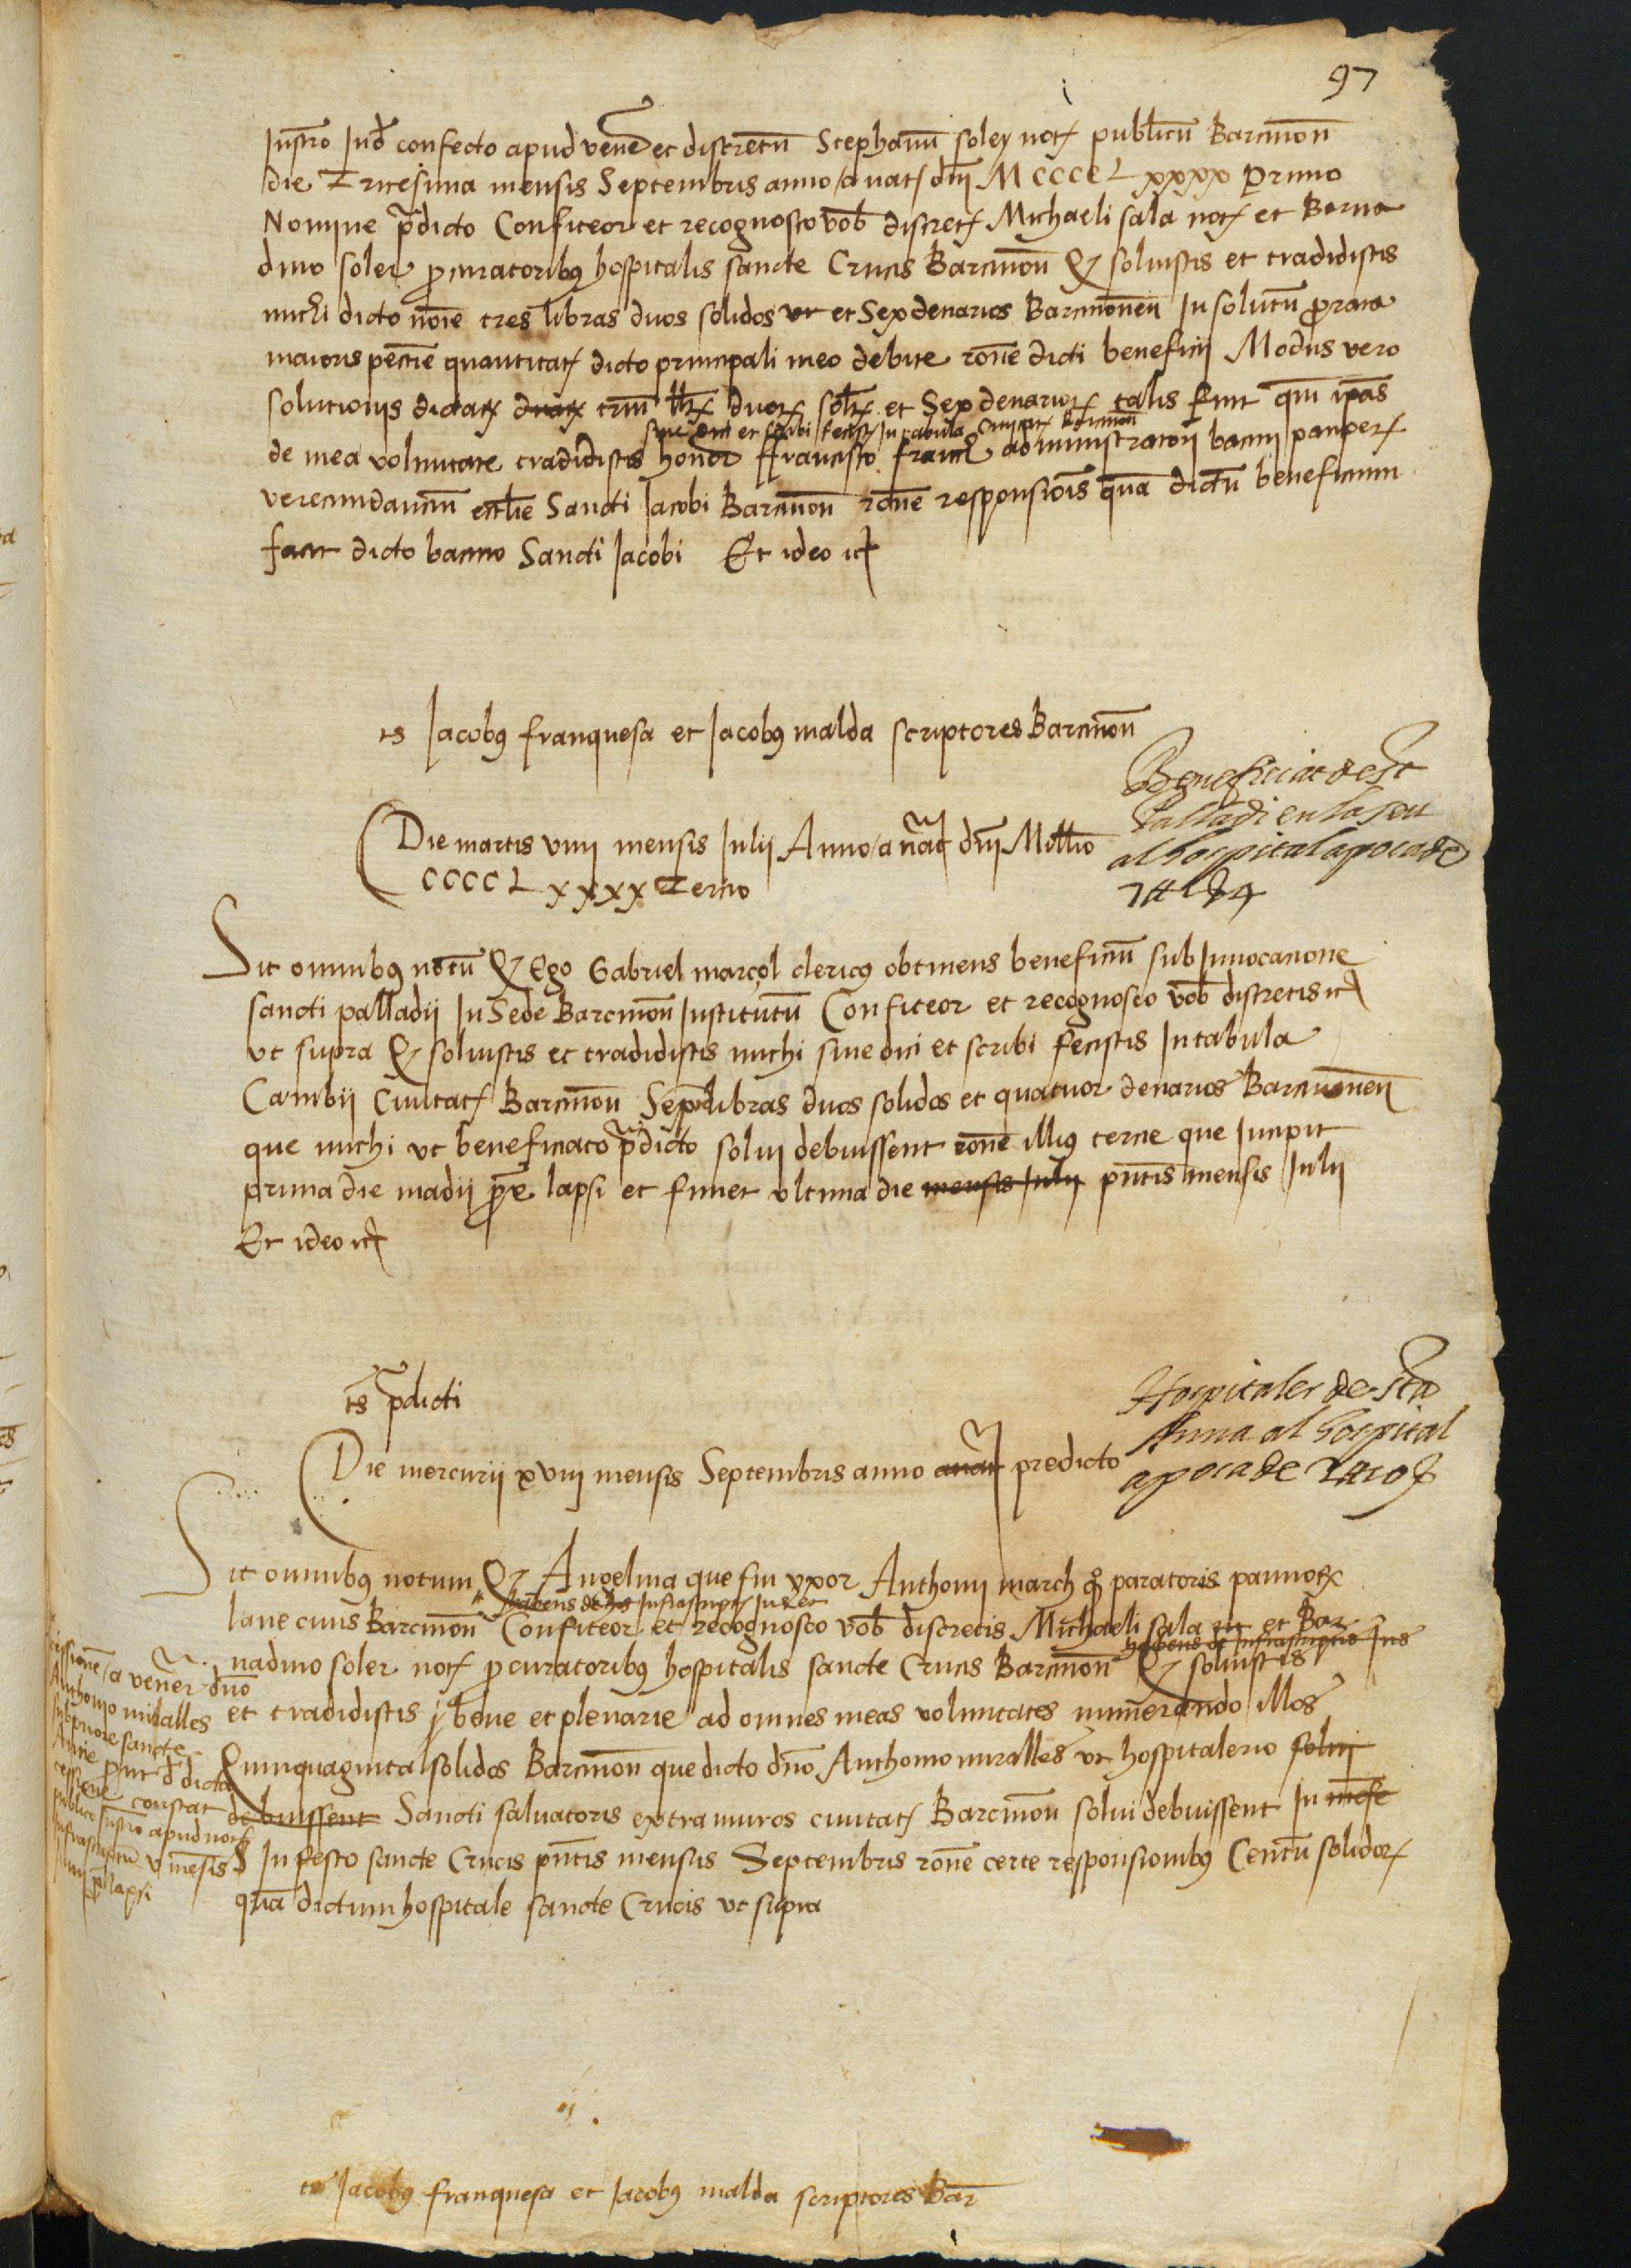 97
Instro Ind confecto apud vene et discretu Stephanu soley not publicu Barcinon
die Tricesima mensis Septembris anno a nat dni M CCCC L xxxx Primo
Nomine pdicto Confiteor et recognosco vob discret Michaeli sala not et Berna
dino soler pcuratoribus hospitalis sancte Crucis Barcinon q soluistis et tradidistis
michi dicto noie tres libras duos solidos et Sex denarios Barcinonen In solutu prorata
maioris pecie quantitat dicto principali meo debite rone dicti beneficii Modus vero
solutionis dictar duar trium llr duor solr et Sex denarior talis fuit qm ipas
sive dici et scribi fecist In tabula Civitat Barcinon
de mea voluntate tradidistis honor ffrancisco franch administratori bacini pauper
verecundanciu ecclie Sancti Jacobi Barcinon rone responsiois qua dictu beneficium
facit dicto bacino Sancti Jacobi Et ideo etc
ts Jacobus franquesa et Jacobus malda scriptores Barcinon
Beneficiat de St
Palladi en la seu
al hospital apoca de
Die martis viiii mensis Julii Anno a nat dni Millio
CCCC L xxxx Tercio
Sit omnibus notu q Ego Gabriel marçol clericus obtinens beneficiu sub Invocacione
sancti palladii In Sede Barcinon Institutu Confiteor et recognosco vob discretis etc
ut supra q soluistis et tradidistis michi sive dici et scribi fecistis In tabula
Cambii Civitat Barcinon Septe libras duos solidos et quatuor denarios Barcinonen
que michi ut beneficiato pdicto solui debuissent rone illius tercie que Incipit
prima die madii pxe lapsi et finiet ultima die mensis Julii pntis mensis Julii
Et ideo etc
ts pdicti
Hospitaler de Sta
Anna al hospital
apoca de
Die mercurii xviii mensis Septembris anno anat predicto
Sit omnibus notum q Angelina que fui uxor Anthonii march qo paratoris pannor
habens de his Infrascript Ius etc
lane civis Barcinon Confiteor et recognosco vob discretis Michaeli sala et Ber
habens de Infrascriptis Ius
nadino soler not pcuratoribus hospitalis sancte Crucis Barcinon q soluistis
et tradidistis bene et plenarie ad omnes meas voluntates numerando illos
Quinquaginta solidos Barcinon que dicto dno Anthonio miralles ut hospitalerio solui
debuissent Sancti saluatoris extra muros civitat Barcinon solui debuissent In mese
In festo sancte Crucis pntis mensis Septembris rone certe responsionibus Centu solidor
qua dictum hospitale sancte Crucis ut supra
cessione a vener dno
Anthonio miralles
subpriore sancte
Anne put de dicta
cessione constat
publico Instro apud not
Infrascriptu v mesis
Junii px lapsi
ts Jacobus franquesa et Jacobus malda scriptores Bar